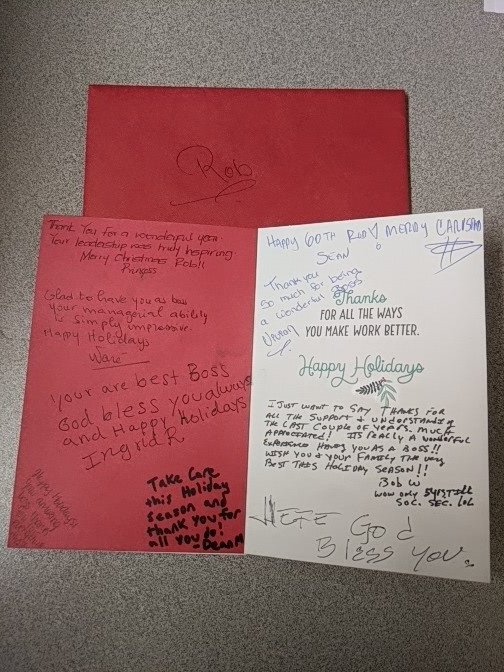 Rob
Thank You for a wonderful year.
Your leadership was truly inspiring.
Merry Christmas Rob!!
Princess
Glad to have you as boss
your managerial ability
is simply impressive.
Happy Holidays
Ware
Your are best Boss
God bless you always
and Happy Holidays
Ingrid R
Happy holidays
Take Care
this Holiday
season and
thank you for
all you do!
-Dean M
HAPPY 60TH ROB! MERRY
SEAN
Thank you
so much for being
a wonderful Boss
Thanks
FOR ALL THE WAYS
YOU MAKE WORK BETTER.
Happy Holidays
I JUST WANT TO SAY THANKS FOR
ALL THE SUPPORT & UNDERSTANDING
THE LAST COUPLE OF YEARS. MUCH
APPRECIATED! ITS REALLY A WONDERFUL
EXPERIENCE HAVING YOU AS A BOSS!!
WISH YOU & YOUR FAMILY THE VERY
BEST THIS HOLIDAY SEASON!!
Bob W
WOW ONLY 5 YRS TILL
SOC. SEC. LOL
JEFE God
Bless You.